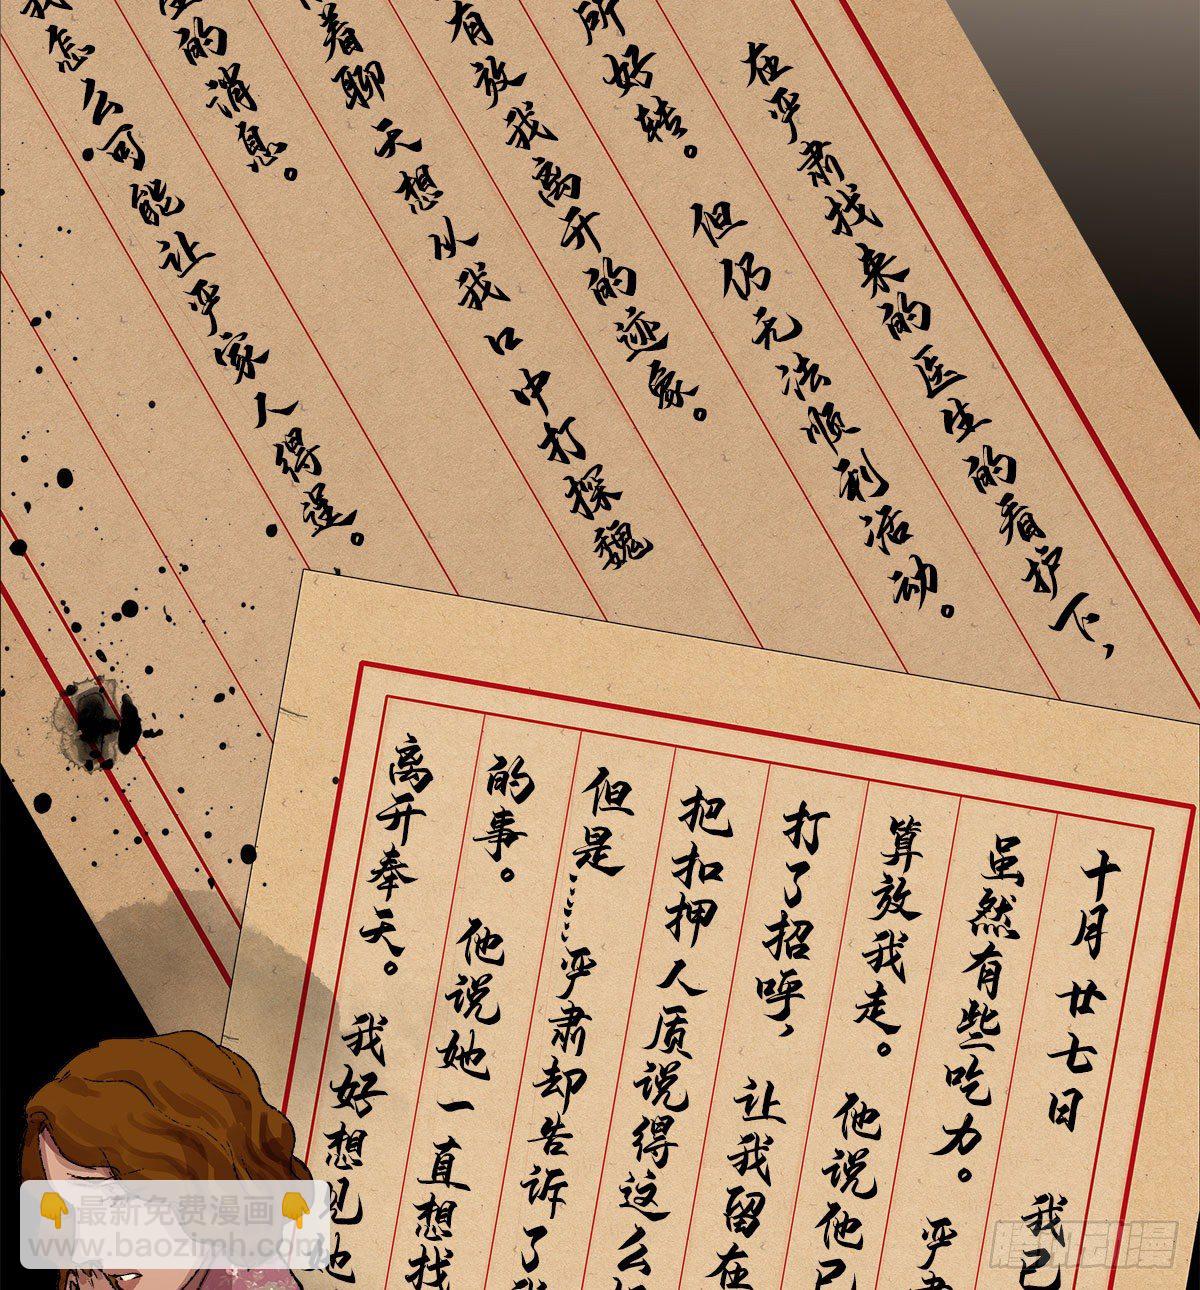 在严肃找来的医生的看护下，
所好转。 但仍无法顺利活动。
有放我离开的迹象。
着聊天想从我口中打探魏
的消息。
我怎么可能让严家人得逞。
十月廿七日 我已
虽然有些吃力。 严肃
算放我走。 他说他已
打了招呼， 让我留在
把扣押人质说得这么
但是……严肃却告诉了我
的事。 他说她一直想找
离开奉天。 我好想见她
最新免费漫画
www.baozimh.com
腾讯动漫